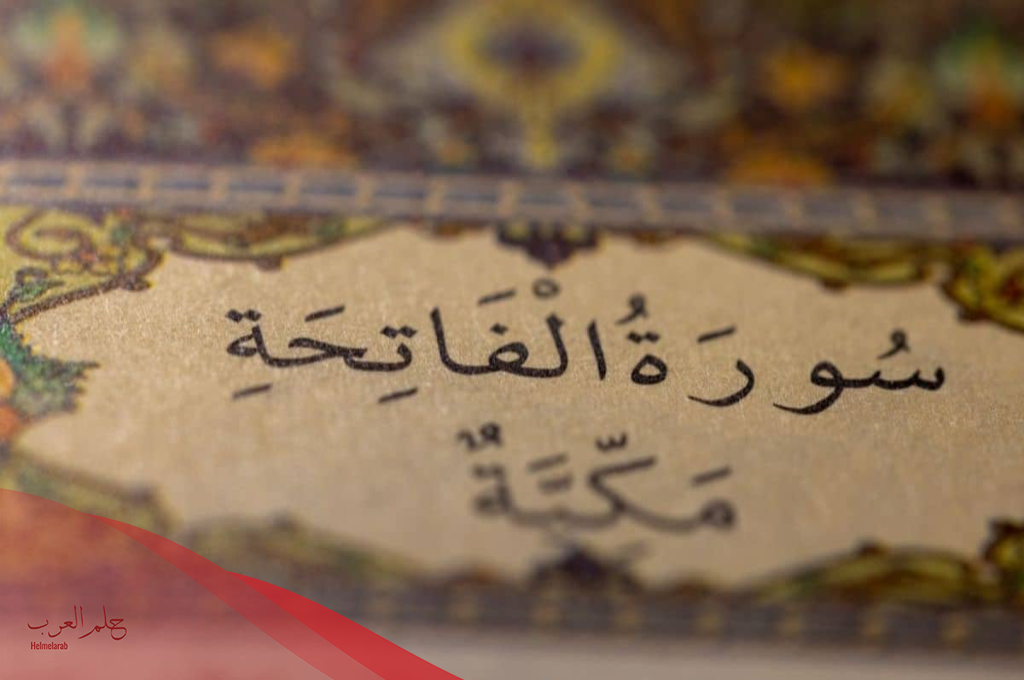 سُورَةُ الْفَاتِحَةِ
مَكِّيَّةٌ
حلم العرب
Helmelarab